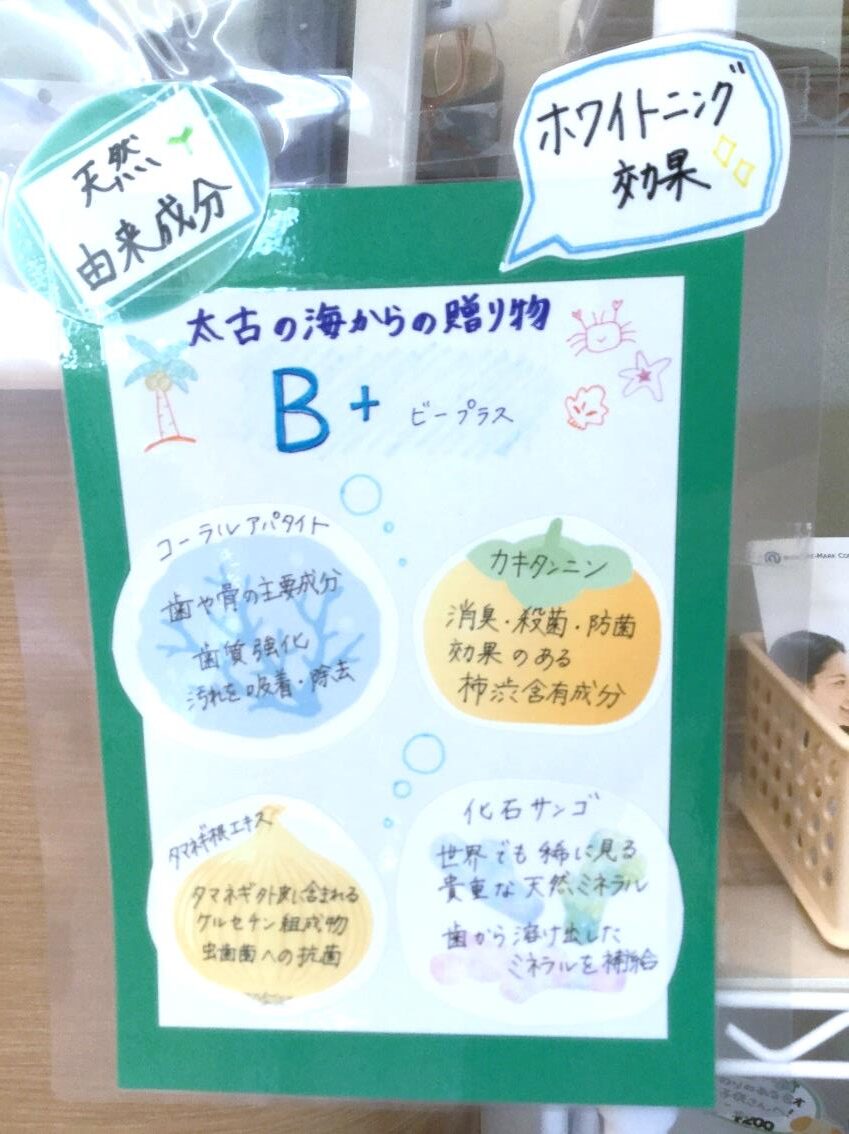 天然
由来成分
ホワイトニング
効果
太古の海からの贈り物
B+ ビープラス
コーラルアパタイト
歯や骨の主要成分
歯質強化
汚れを吸着・除去
カキタンニン
消臭・殺菌・防菌
効果のある
柿渋含有成分
タマネギ根エキス
タマネギ外皮に含まれる
ケルセチン組成物
虫歯菌への抗菌
化石サンゴ
世界でも稀に見る
貴重な天然ミネラル
歯から溶け出した
ミネラルを補給
¥200